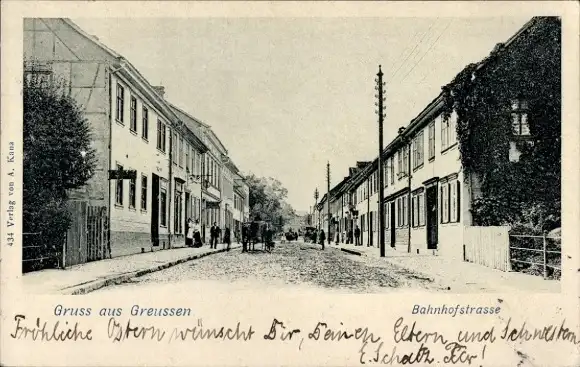 434 Verlag von A. Kana
Gruss aus Greussen
Bahnhofstrasse
Fröhliche Ostern wünscht Dir, Deinen Eltern und Schwestern
E. Schatz